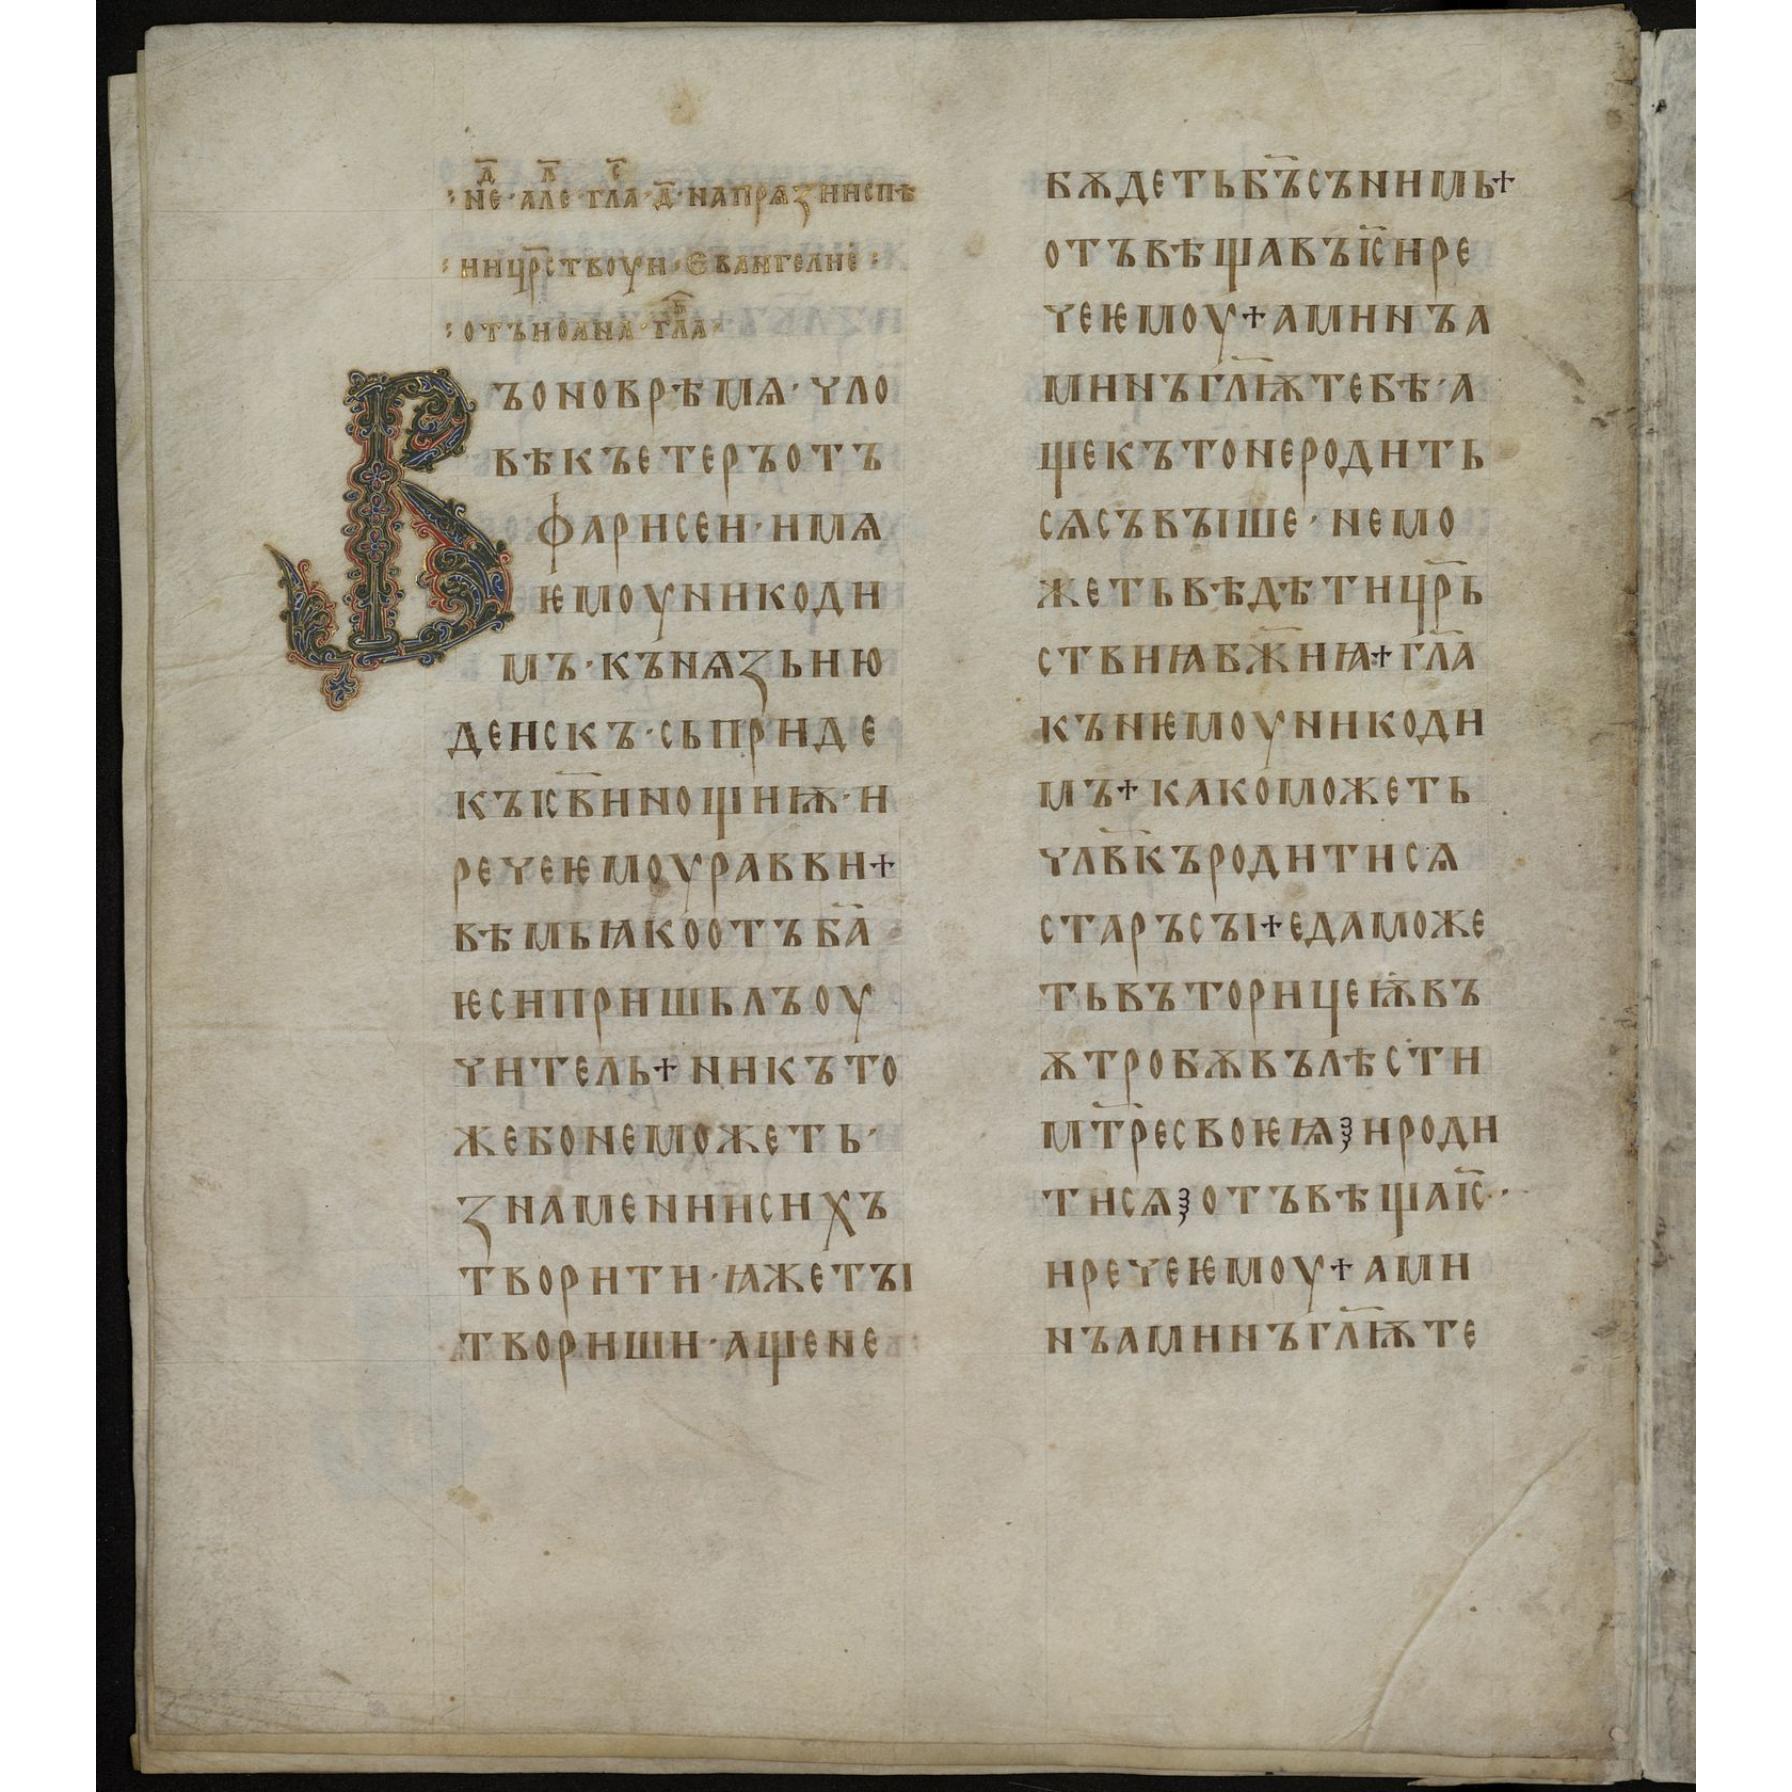 : не · але · гла · д҃ · напрѧзниспѣ
: ници҃рствоуи · Евангелие :
: отъиоана · гл҃а ·
Въоноврѣмѧ · чло
вѣкъетеръотъ
фарисеи · имѧ
ѥмоуникоди
мъ · кънѧзьию
деискъ · сьприде
къі҃с҃винощиѭ · и
речеѥмоуравви+
вѣмьꙗкоотъб҃а
ѥсипришьлъоу
читель+никъто
жебонеможеть ·
знамениисихъ
творити · ꙗжетъі
твориши · ащене
бѫдетьб҃ъсънимь+
отъвѣщавъі҃сире
чеѥмоу+аминъа
минъгл҃ѭтебѣ · а
щекътонеродить
сѧсъвъіше · немо
жетьвѣдѣтицр҃ь
ствиꙗбж҃иꙗ+гл҃а
къниѥмоуникоди
мъ+какоможеть
члв҃къродитисѧ
старъсъі+едаможе
тьвъторицеѭвъ
ѫтробѫвълѣсти
мт҃ресвоѥꙗ ⁏ ироди
тисѧ ⁏ отъвѣщаі҃с · ·
иречеѥмоу+ами
нъаминъгл҃ѭте